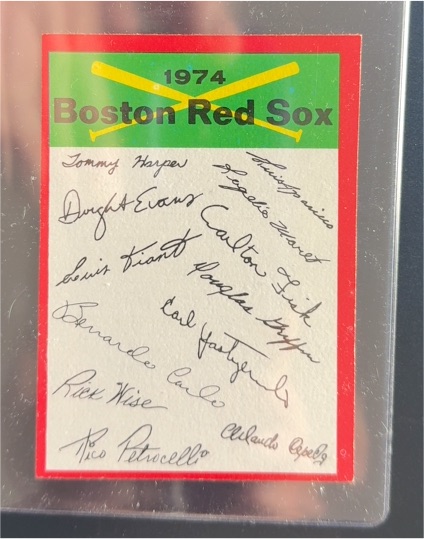 1974
Boston Red Sox
Tommy Harper
Luis Aparicio
Rogelio Moret
Dwight Evans
Carlton Fisk
Luis Tiant
Douglas Griffin
Carl Yastrzemski
Bernardo Carbo
Rick Wise
Orlando Cepeda
Rico Petrocelli